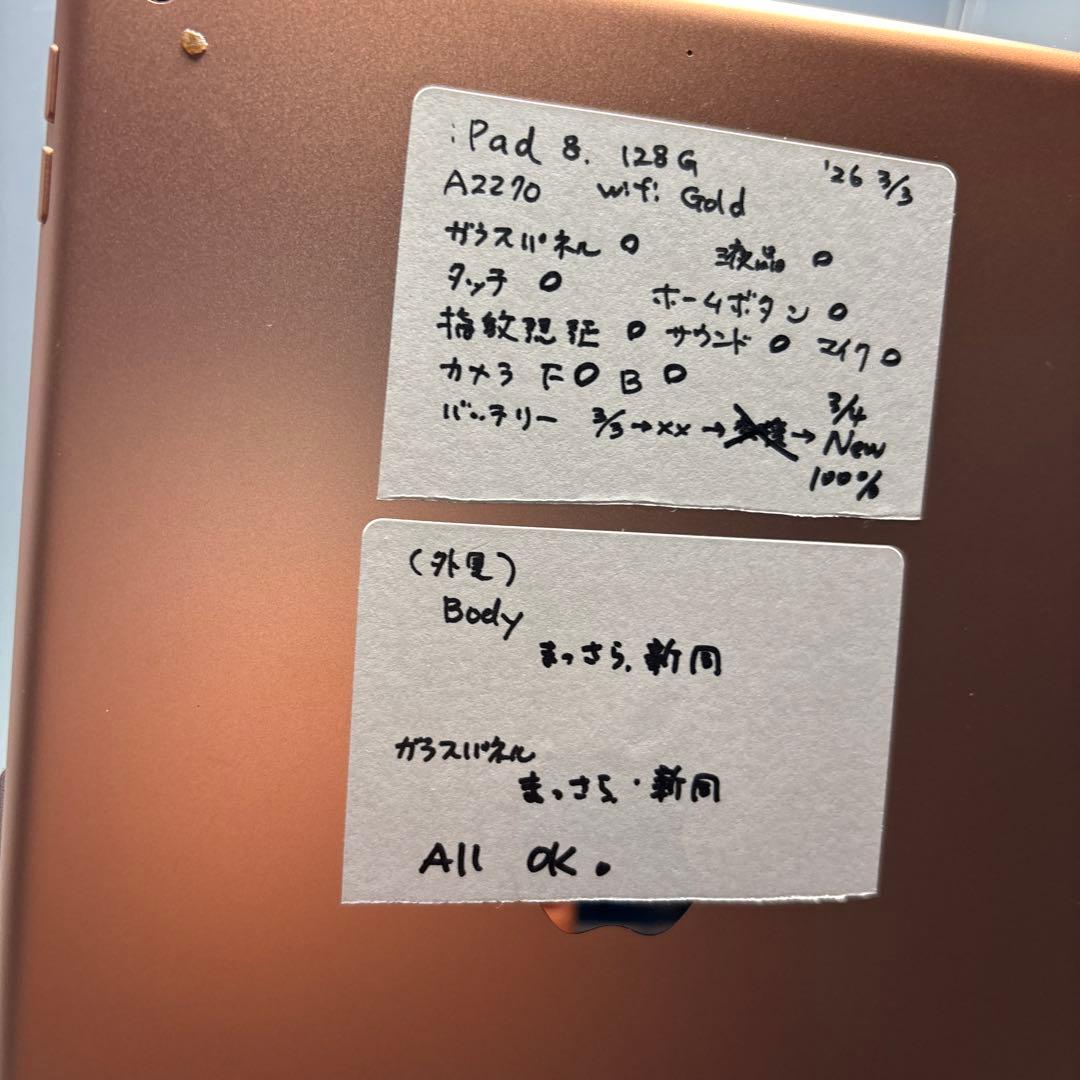 iPad 8. 128G '26 3/3
A2270 wifi Gold
ガラスパネル ○ 液晶 ○
タッチ ○ ホームボタン ○
指紋認証 ○ サウンド ○ マイク ○
カメラ F ○ B ○
3/4
バッテリー 3/3→××→→New
100%
(外見)
Body
まっさら、新同
ガラスパネル
まっさら・新同
All OK.